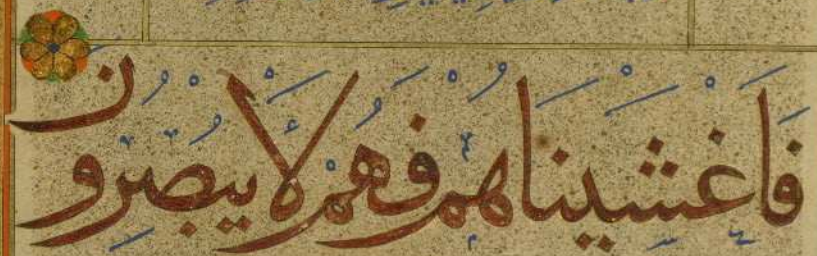 فَاَغْشَيْنَاهُمْ فَهُمْ لَا يُبْصِرُونَ